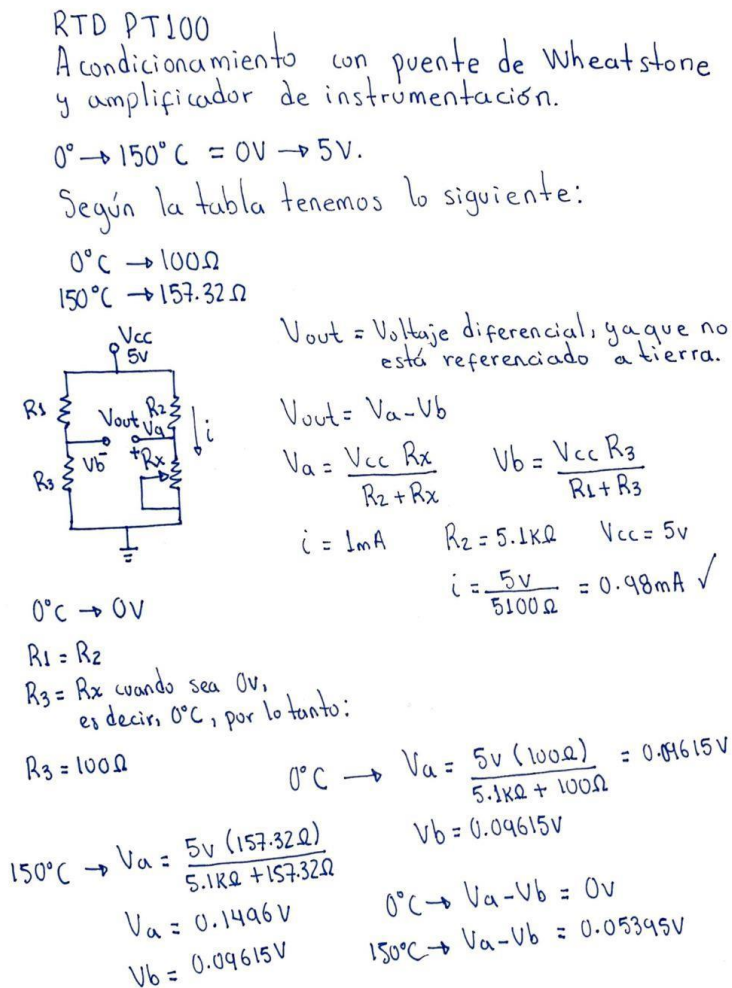 RTD PT100
Acondicionamiento con puente de Wheatstone
y amplificador de instrumentación.
0° → 150°C = 0V → 5V.
Según la tabla tenemos lo siguiente:
0°C → 100Ω
150°C → 157.32Ω
Vcc
5V
R1
R2
Vout
Va
i
Vb
-
+
Rx
R3
Vout = Voltaje diferencial, ya que no
está referenciado a tierra.
Vout = Va-Vb
Va = Vcc Rx / R2 + Rx
Vb = Vcc R3 / R1 + R3
i = 1mA R2 = 5.1KΩ Vcc = 5v
i = 5v / 5100Ω = 0.98mA ✓
0°C → 0V
R1 = R2
R3 = Rx cuando sea 0v,
es decir, 0°C, por lo tanto:
R3 = 100Ω
0°C → Va = 5v (100Ω) / 5.1KΩ + 100Ω = 0.09615V
Vb = 0.09615V
150°C → Va = 5v (157.32Ω) / 5.1KΩ + 157.32Ω
Va = 0.1496V
Vb = 0.09615V
0°C → Va-Vb = 0v
150°C → Va-Vb = 0.05345V